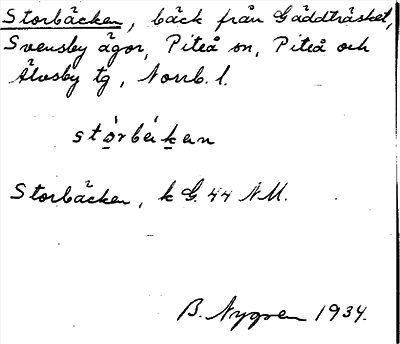 Storbäcken, bäck från Gäddträsket,
Svensby ägor, Piteå sn, Piteå och
Älvsby tg, Norrb. l.
stòrbäkan
Storbäcken, k G. 44 NU.
B. Nygren 1934.